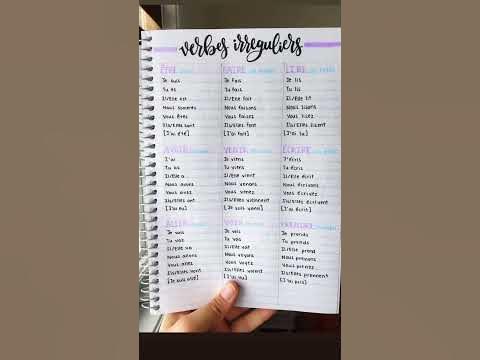 verbes irreguliers
ÊTRE
Je suis
Tu es
Il/Elle est
Nous sommes
Vous êtes
Ils/Elles sont
[J'ai été]
FAIRE
Je fais
Tu fais
Il/Elle fait
Nous faisons
Vous faisez
Ils/Elles font
[J'ai fait]
LIRE
Je lis
Tu lis
Il/Elle lit
Nous lisons
Vous lisez
Ils/Elles lisent
[J'ai lu]
AVOIR
J'ai
Tu as
Il/Elle a
Nous avons
Vous avez
Ils/Elles ont
[J'ai eu]
VENIR
Je viens
Tu viens
Il/Elle vient
Nous venons
Vous venez
Ils/Elles viennent
[Je suis venu]
ÉCRIRE
J'écris
Tu écris
Il/Elle écrit
Nous écrivons
Vous écrivez
Ils/Elles écrivent
[J'ai écrit]
ALLER
Je vais
Tu vas
Il/Elle va
Nous allons
Vous allez
Ils/Elles vont
[Je suis allé]
VOIR
Je vois
Tu vois
Il/Elle voit
Nous voyons
Vous voyez
Ils/Elles voient
[J'ai vu]
PRENDRE
Je prends
Tu prends
Il/Elle prend
Nous prenons
Vous prenez
Ils/Elles prennent
[J'ai pris]